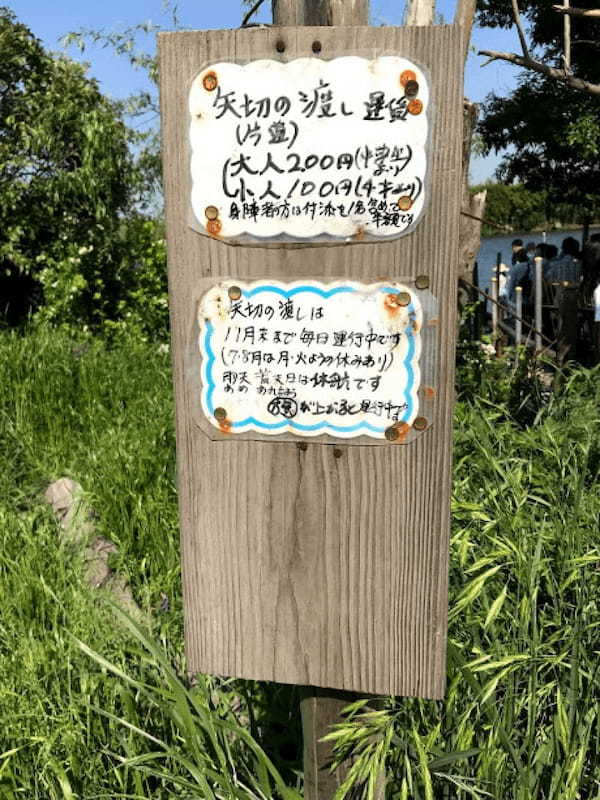 矢切の渡し 運賃
(片道)
大人200円(中学生より)
小人100円(4才より)
身障者の方は付添も1名含めて
半額です
矢切の渡しは
11月末まで毎日運行中です
(7・8月は月・火ようの休みあり)
雨天 荒天日は休航です
あめ あれるよう
が上がると運行中です